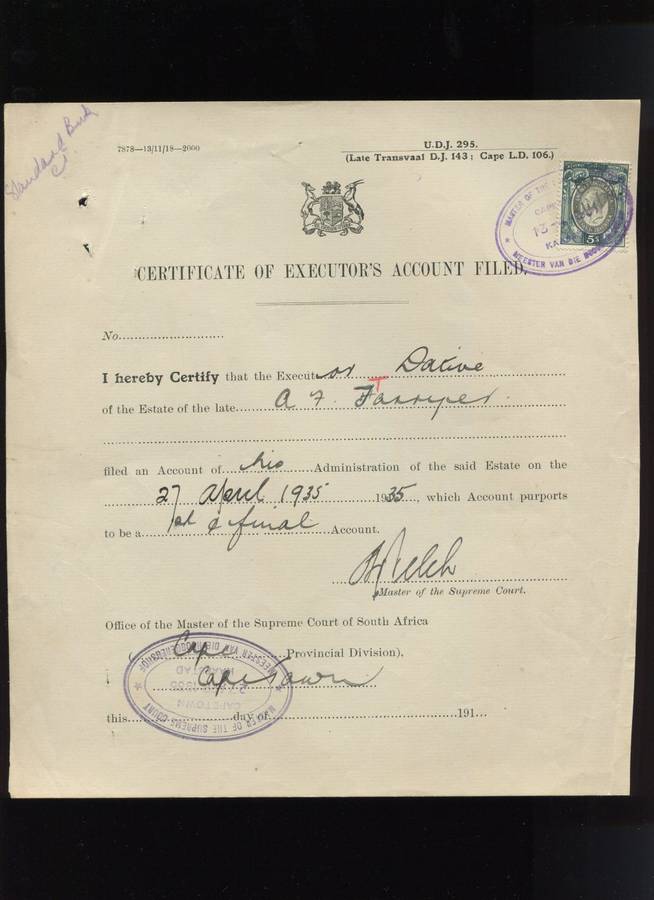 Standard Bank
7878—13/11/18—2000
U.D.J. 295.
(Late Transvaal D.J. 143; Cape L.D. 106.)
5s
CERTIFICATE OF EXECUTOR'S ACCOUNT FILED.
No.
I hereby Certify that the Executor Dative
of the Estate of the late A F.
filed an Account of his Administration of the said Estate on the
27 April 1935 1935, which Account purports
to be a 1st & final Account.
Welch
Master of the Supreme Court.
Office of the Master of the Supreme Court of South Africa
(Cape Provincial Division),
Cape Town
MASTER OF THE SUPREME COURT
CAPETOWN
KAAPSTAD
MEESTER VAN DIE HOOGGEREGSHOF
this day of 191